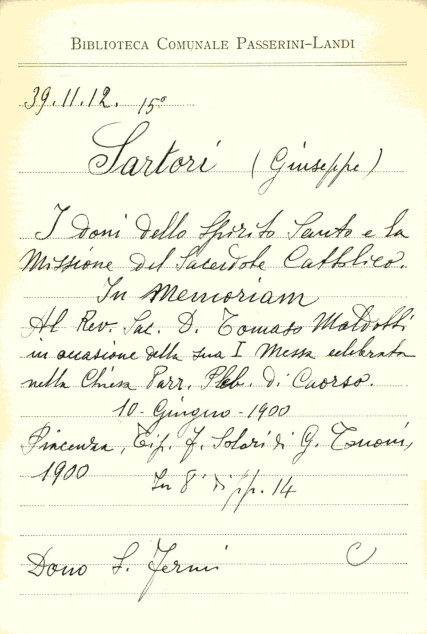 BIBLIOTECA COMUNALE PASSERINI-LANDI
39.11.12. 15°
Sartori (Giuseppe)
I doni dello Spirito Santo e la
Missione del Sacerdote Cattolico.
In Memoriam
Al Rev. Sac. D. Tomaso Maldotti
in occasione della sua I Messa celebrata
nella Chiesa Parr. Pleb. di Caorso.
10 - Giugno - 1900
Piacenza, Tip. F. Solari di G. Tononi,
1900 In 8° di pp. 14
Dono S. Fermi C